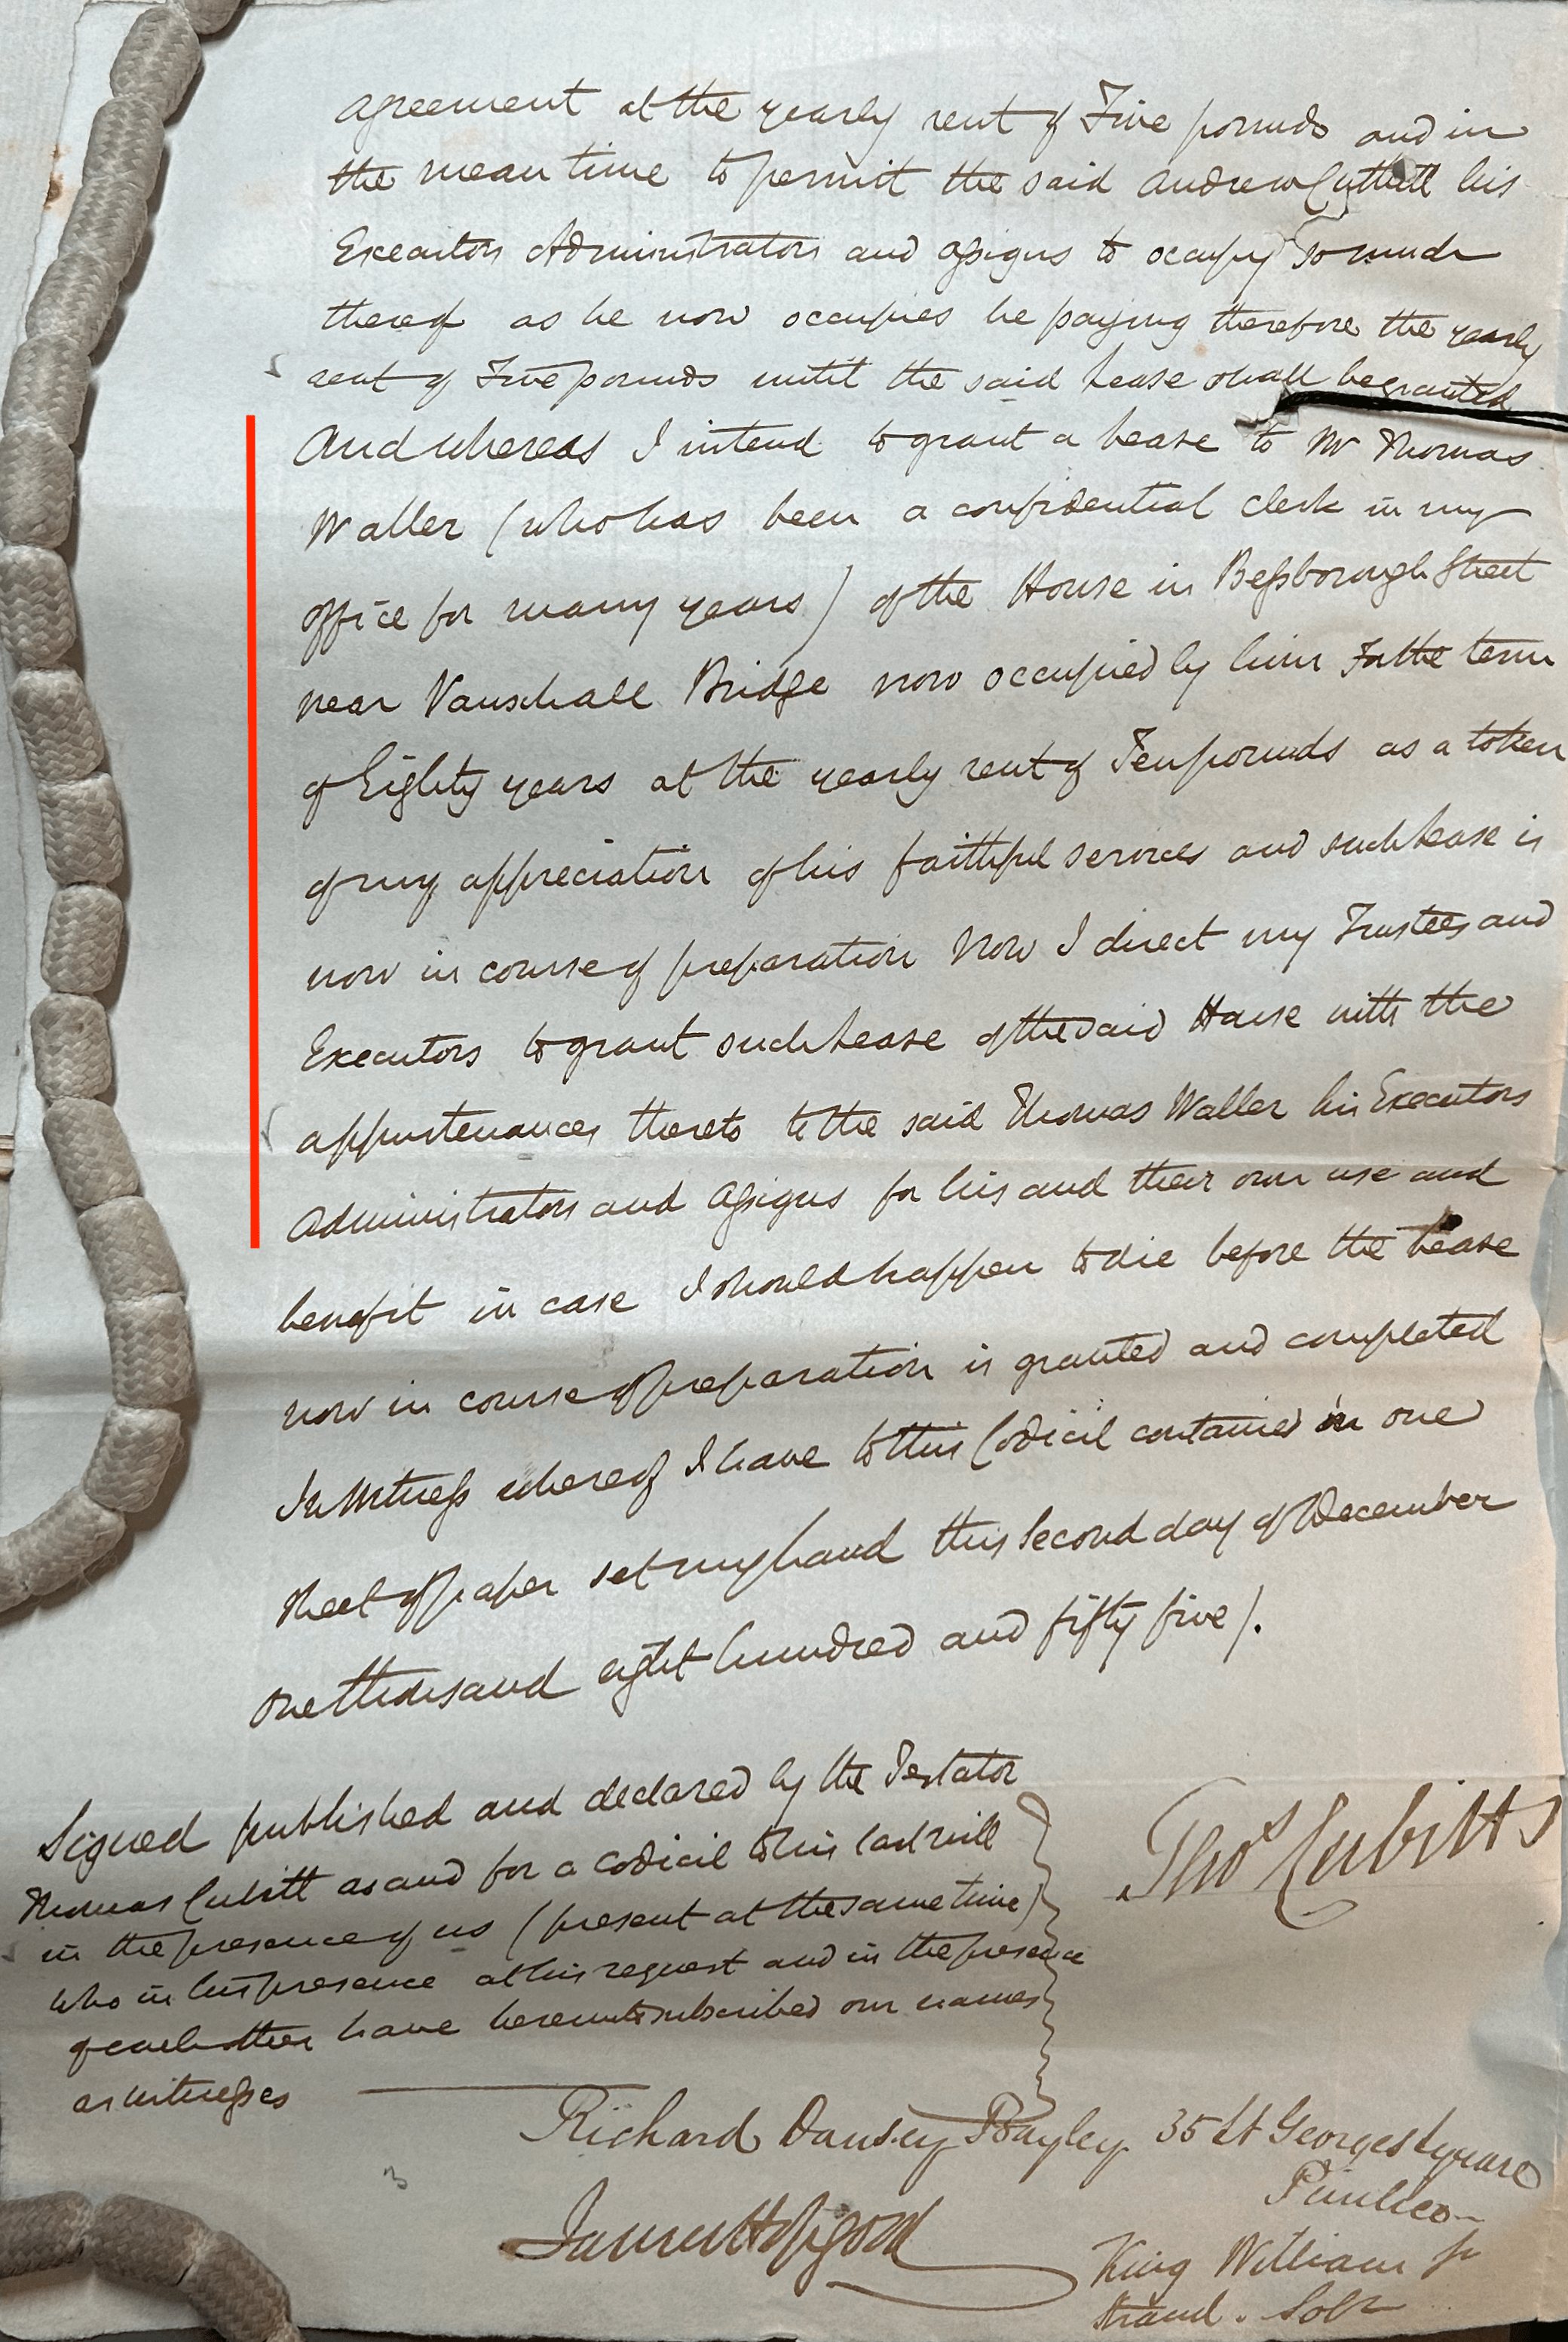 agreement at the yearly rent of Five pounds and in
the mean time to permit the said Andrew Cuthell his
Executors Administrators and assigns to occupy so much
thereof as he now occupies he paying therefore the yearly
rent of Five pounds until the said Lease shall be granted
And whereas I intend to grant a Lease to Mr Thomas
Waller (who has been a confidential clerk in my
office for many years) of the House in Bessborough Street
near Vauxhall Bridge now occupied by him For the term
of Eighty years at the yearly rent of Ten pounds as a token
of my appreciation of his faithful services and such Lease is
now in course of preparation Now I direct my Trustees and
Executors to grant such Lease of the said House with the
appurtenances thereto to the said Thomas Waller his Executors
Administrators and Assigns for his and their own use and
benefit in case I should happen to die before the Lease
now in course of preparation is granted and completed
In Witness whereof I have to this Codicil contained in one
sheet of paper set my hand this Second day of December
One thousand eight hundred and fifty five /.
Signed published and declared by the Testator
Thomas Cubitt as and for a codicil to his last will
in the presence of us (present at the same time)
who in his presence at his request and in the presence
of each other have hereunto subscribed our names
as witnesses
Thos Cubitt
Richard Dansey Bayley 35 St Georges Square
Pimlico
James Hopgood
King William St
Strand. Solr
3